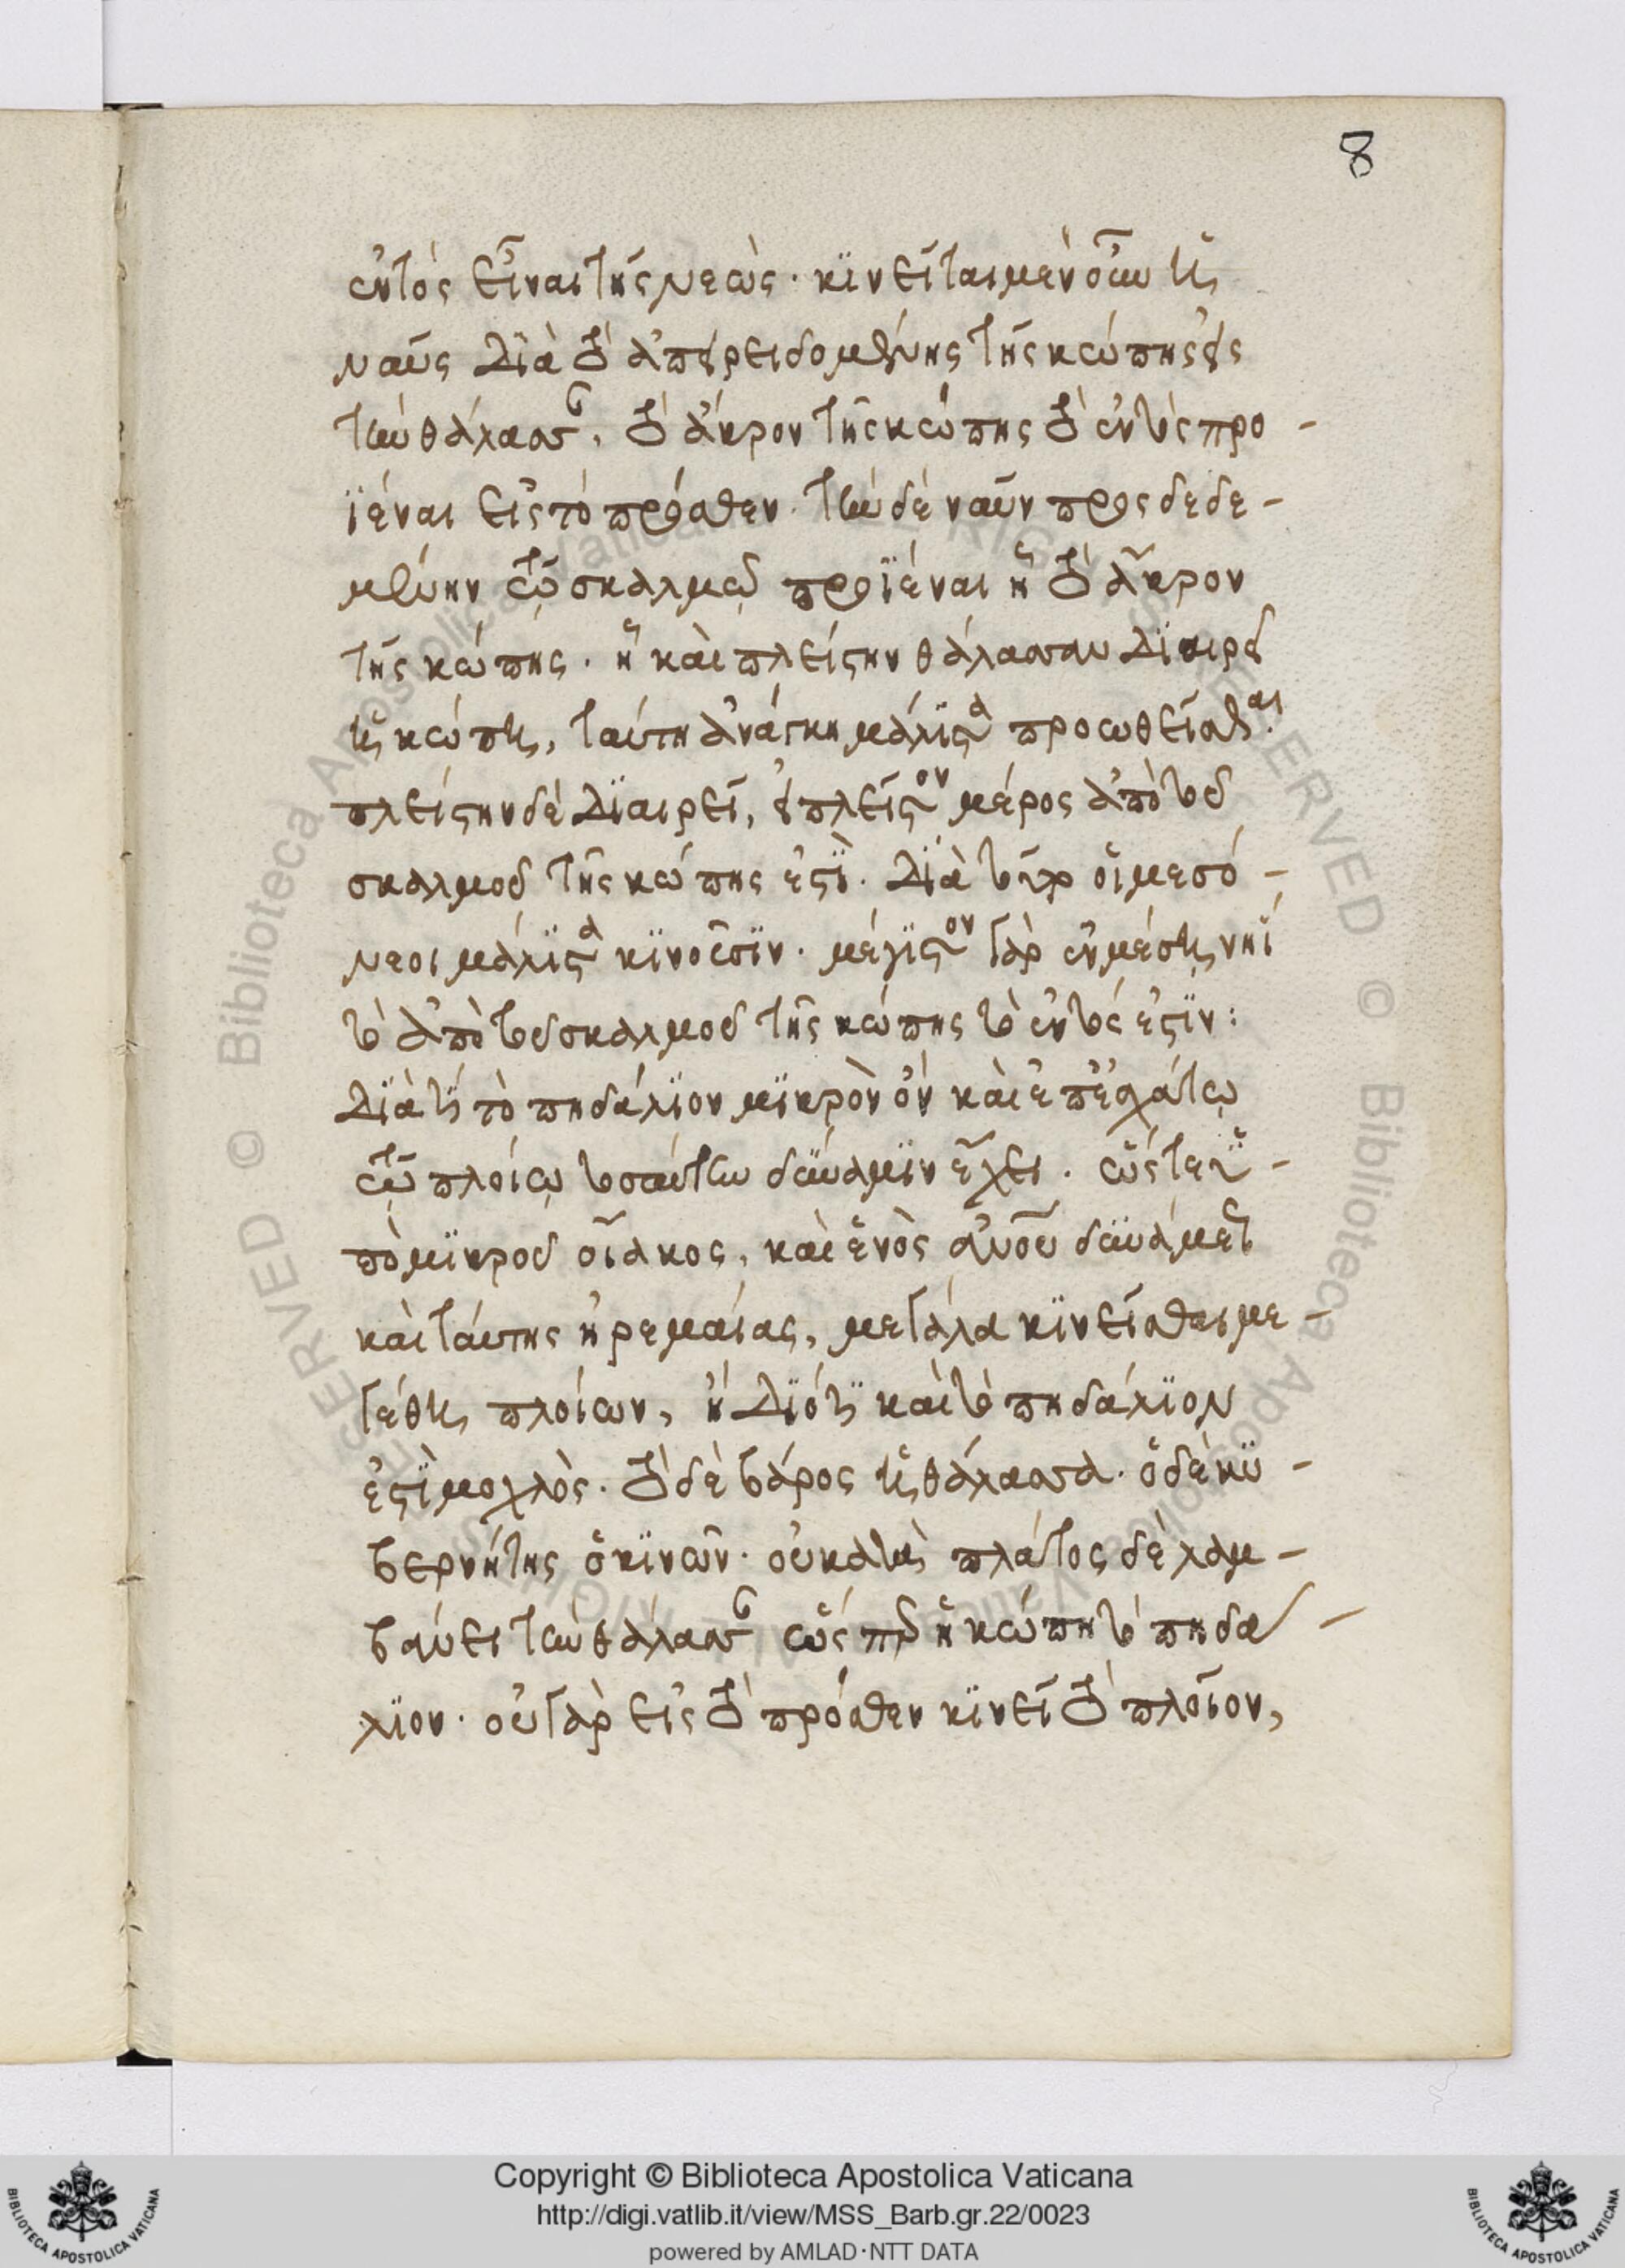 8
ἐντὸς εἶναι τῆς νεώς· κϊνεῖται μὲν οὖν ἡ
ναῦς δϊὰ τὸ ἀπερειδομένης τῆς κώπης εἰς
τὴν θάλασσαν, τὸ ἄκρον τῆς κώπης τὸ ἐντὸς προ-
ϊέναι εἰς τὸ πρόσθεν· τὴν δὲ ναῦν προςδεδε-
μένην τῷ σκαλμῷ προϊέναι ἧ τὸ ἄκρον
τῆς κώπης· ἧ καὶ πλείστην θάλασσαν δϊαιρεῖ
ἡ κώπη, ταύτη ἀνάγκη μάλϊστα προωθεῖσθαι·
πλείστην δὲ δϊαιρεῖ, ἧ πλεῖστον μέρος ἀπὸ τοῦ
σκαλμοῦ τῆς κώπης ἐστϊ· δϊὰ τοῦτο οἱ μεσό-
νεοι μάλϊστα κϊνοῦσϊν· μέγϊστον γὰρ ἐν μέση νηῒ
τὸ ἀπὸ τοῦ σκαλμοῦ τῆς κώπης τὸ ἐντός ἐστϊν:
δϊὰ τί τὸ πηδάλϊον μϊκρὸν ὂν καὶ ἐπ' ἐσχάτῳ
τῷ πλοίῳ τοσαύτην δύναμϊν ἔχει· ὥστε ὑ-
πὸ μϊκροῦ οἴακος, καὶ ἑνὸς ἀνθρώπου δυνάμεως
καὶ ταύτης ἠρεμαίας, μεγάλα κϊνεῖσθαι με-
γέθη πλοίων, ἢ δϊότϊ καὶ τὸ πηδάλϊον
ἐστϊ μοχλὸς· τὸ δὲ βάρος ἡ θάλασσα· ὁ δὲ κϋ-
βερνήτης ὁ κϊνῶν· οὐ κατὰ πλάτος δὲ λαμ-
βάνει τὴν θάλασσαν ὥςπερ ἡ κώπη τὸ πηδά-
λϊον· οὐ γὰρ εἰς τὸ πρόσθεν κϊνεῖ τὸ πλοῖον,
Copyright © Biblioteca Apostolica Vaticana
http://digi.vatlib.it/view/MSS_Barb.gr.22/0023
powered by AMLAD·NTT DATA